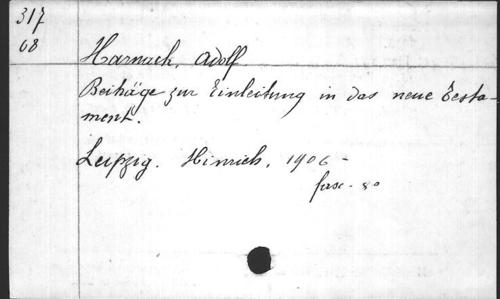 317
68
Harnack, Adolf
Beiträge zur Einleitung in das neue Testa-
ment.
Leipzig. Hinrich, 1906-
fasc. 8°